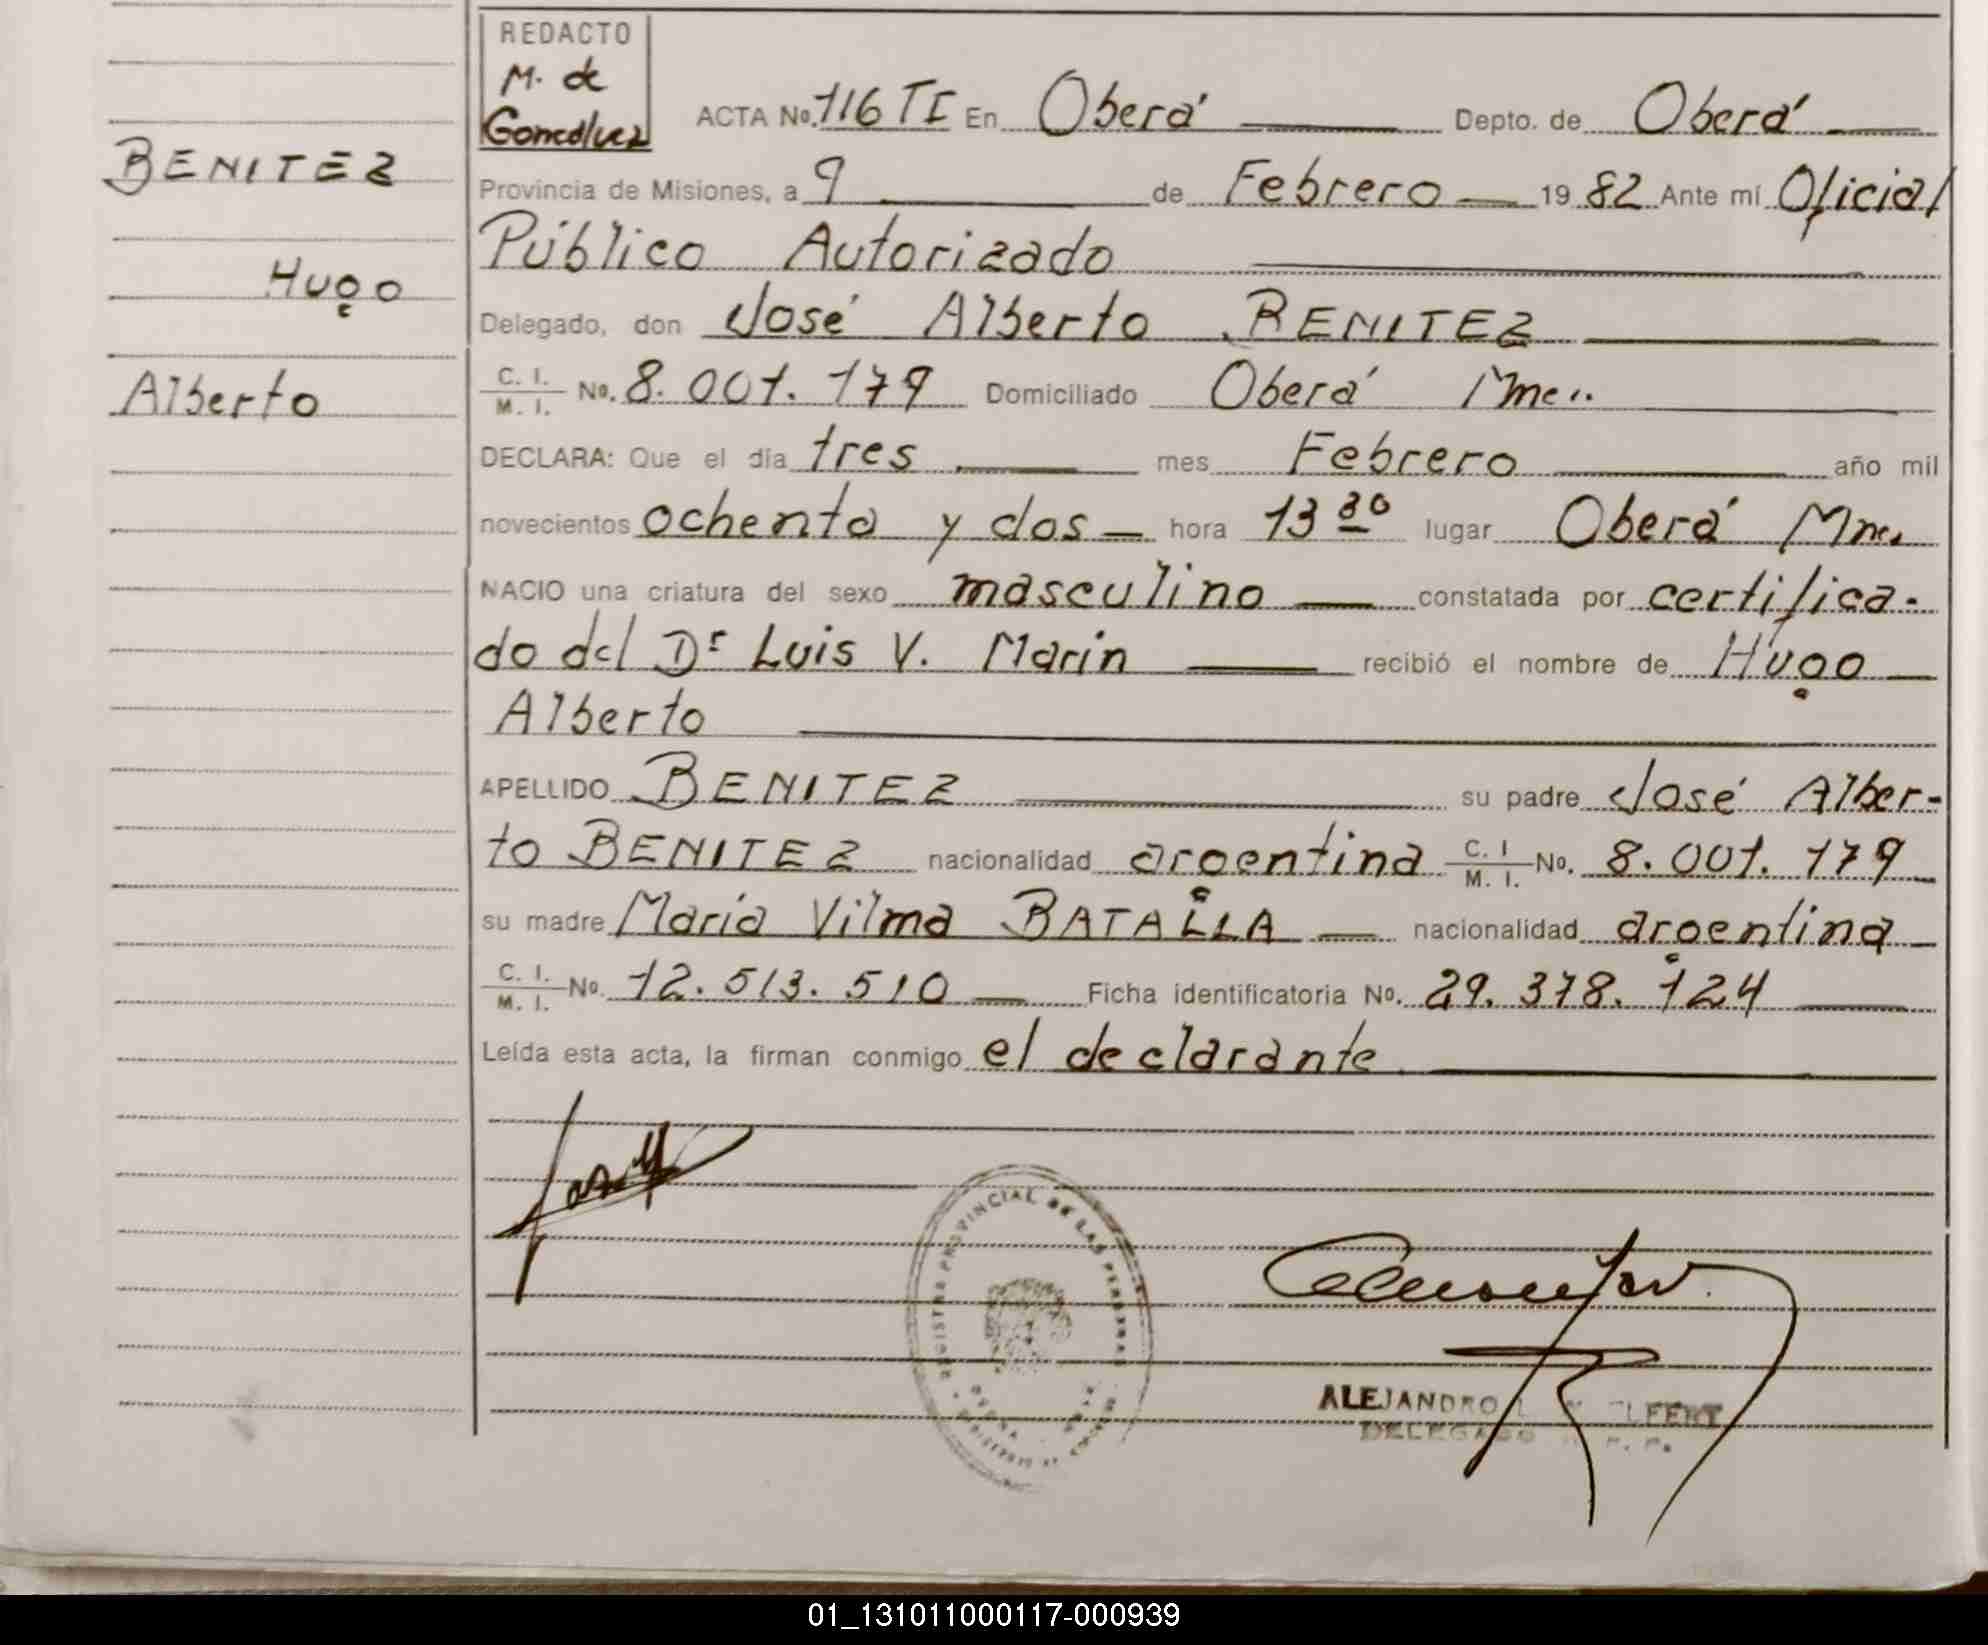 REDACTO
M. de
Goncalvez
ACTA No. 116 TI En Oberá Depto. de Oberá
BENITEZ
Provincia de Misiones, a 9 de Febrero 1982 Ante mí Oficial
Público Autorizado
Hugo
Delegado, don José Alberto BENITEZ
Alberto
C. I. / M. I. No. 8.001.179 Domiciliado Oberá Mnes.
DECLARA: Que el día tres mes Febrero año mil
novecientos ochenta y dos hora 13 30 lugar Oberá Mnes.
NACIO una criatura del sexo masculino constatada por certifica-
do del Dr Luis V. Marin recibió el nombre de Hugo
Alberto
APELLIDO BENITEZ su padre José Alber-
to BENITEZ nacionalidad argentina C. I / M. I. No. 8.001.179
su madre María Vilma BATALLA nacionalidad argentina
C. I. / M. I. No. 12.513.510 Ficha identificatoria No. 29.378.124
Leída esta acta, la firman conmigo el declarante
REGISTRO PROVINCIAL DE LAS PERSONAS
ALEJANDRO
DELEGADO R. P. P.
01_131011000117-000939